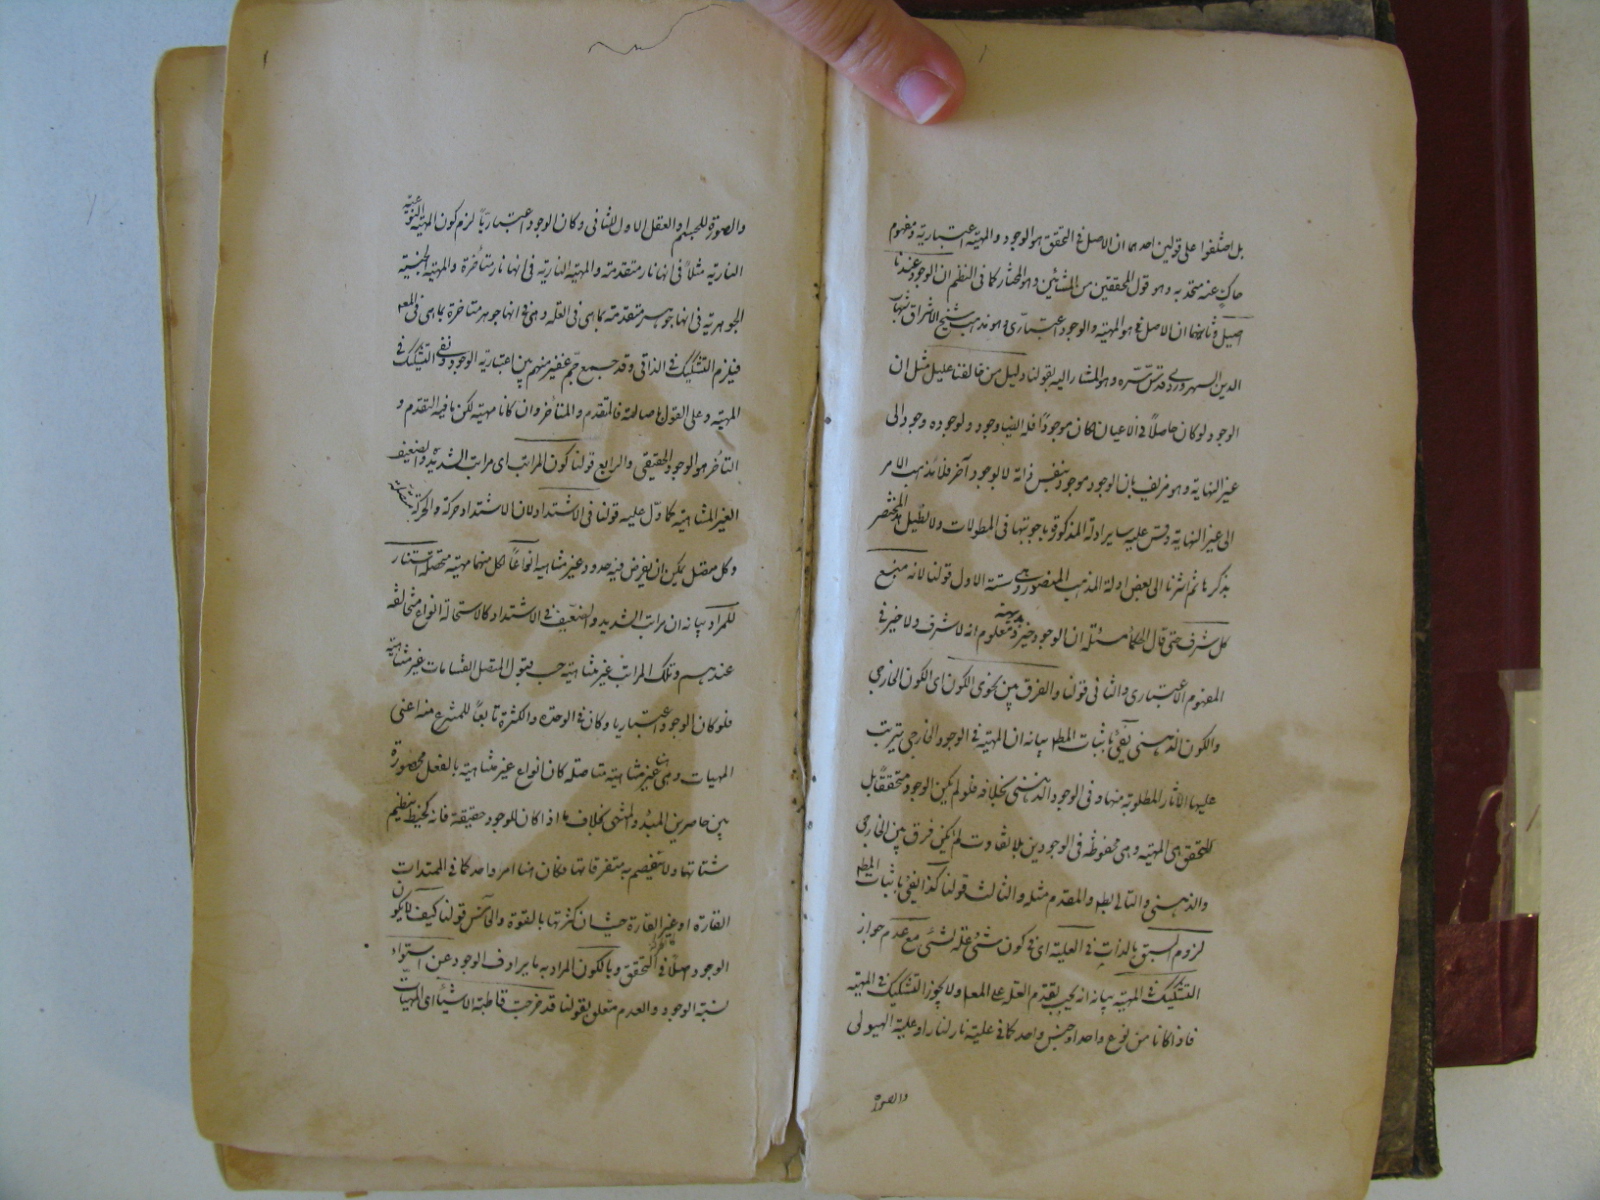 بل اختلفوا على قولين احدهما ان الاصل فى التحقق هو الوجود والمهية اعتبارية ومفهوم
حاك عنه متحد به وهو قول المحققين من المشائين وهو المختار كما فى النظم ان الوجود عندنا
اصيل وثانيهما ان الاصل هو المهية والوجود اعتبارى وهو مذهب شيخ الاشراق شهاب
الدين السهروردى قدس سره وهو المشار اليه بقولنا دليل من خالفنا عليل مثل ان
الوجود لو كان حاصلاً فى الاعيان لكان موجوداً فله ايضا وجود ولوجوده وجود الى
غير النهاية وهو مزيف بان الوجود موجود بنفس ذاته لا بوجود آخر فلا يذهب الامر
الى غير النهاية وقس عليه ساير ادلة المذكورة باجوبتها فى المطولات ولا نطيل هذا المختصر
بذكرها ثم اشرنا الى بعض ادلة المذهب المنصور وهى ستة الاول قولنا لانه منبع
كل شرف حتى قال الحكماء مسئلة ان الوجود خير بديهية ومعلوم انه لا شرف ولا خير فى
المفهوم الاعتبارى والثانى قولنا والفرق بين نحوى الكون اى الكون الخارجى
والكون الذهنى يفى باثبات المطم بيانه ان المهية فى الوجود الخارجى يترتب
عليها الآثار المطلوبة منها وفى الوجود الذهنى بخلافه فلو لم يكن الوجود متحققاً بل
المتحقق هى المهية وهى محفوظة فى الوجودين بلا تفاوت لم يكن فرق بين الخارجى
والذهنى والتالى بط والمقدم مثله والثالث قولنا كذا يفى باثبات المطم
لزوم السبق بالذات فى العلية اى فى كون شىء علة لشىء مع عدم جواز
التشكيك فى المهية بيانه انه يجب تقدم العلة على المعلول ولا يجوز التشكيك فى المهية
فاذا كانا من نوع واحد او جنس واحد كما فى علية نار لنار او علية الهيولى
والصورة
والصورة للجسم او العقل الاول للثانى وكان الوجود اعتبارياً لزم كون المهية النوعية
النارية مثلاً فى انها نار متقدمة والمهية النارية فى انها نار متأخرة والمهية الجنسية
الجوهرية فى انها جوهر متقدمة بما هى فى العلة وهى فى انها جوهر متاخرة بما هى فى المعلول
فيلزم التشكيك فى الذاتى وقد جمع جم غفير منهم بين اعتبارية الوجود ونفى التشكيك فى
المهية وعلى القول باصالته فالمتقدم والمتأخر وان كانا مهية لكن ما فيه التقدم و
التأخر هو الوجود الحقيقى والرابع قولنا كون المراتب اى مراتب الشديد والضعيف
الغير المتناهية كما دل عليه قولنا فى الاشتداد لان الاشتداد حركة والحركة متصلة
وكل متصل يمكن ان يفرض فيه حدود غير متناهية انواعاً لكل منها مهية متحصلة استنار
للمراد بيانه ان مراتب الشديد والضعيف فى الاشتداد كالاستحالة انواع متخالفة
عندهم وتلك المراتب غير متناهية حسب قبول المتصل انقسامات غير متناهية
فلو كان الوجود اعتباريا وكان فى الوحدة والكثرة تابعاً للمنتزع منه اعنى
المهيات وهى هنا غير متناهية متاصلة كان انواع غير متناهية بالفعل محصورة
بين حاصرين المبدء والمنتهى بخلاف ما اذا كان للوجود حقيقة فانه كخيط ينظم
شتاتها ولا ينفصم به متفرقاتها وكان هنا امر واحد كما فى الممتدات
القارة او غير القارة حيث ان كثرتها بالقوة والخامس قولنا كيف لا يكون
الوجود اصلاً فى التحقق وبالكون المراد به ما يرادف الوجود عن استواء
نسبة الوجود والعدم متعلق بقولنا قد خرجت قاطبة الاشياء اى المهيات